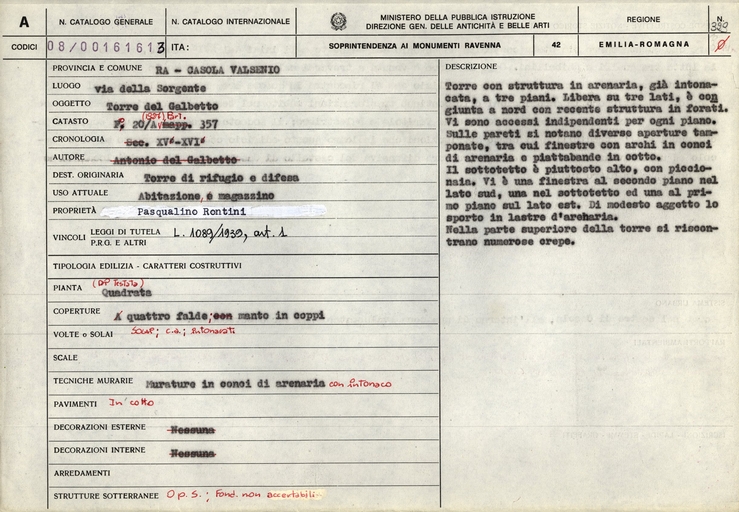 A
N. CATALOGO GENERALE
N. CATALOGO INTERNAZIONALE
MINISTERO DELLA PUBBLICA ISTRUZIONE
DIREZIONE GEN. DELLE ANTICHITÀ E BELLE ARTI
REGIONE
N.
CODICI
08/00161613
ITA:
SOPRINTENDENZA AI MONUMENTI RAVENNA
42
EMILIA-ROMAGNA
PROVINCIA E COMUNE RA - CASOLA VALSENIO
LUOGO via della Sorgente
OGGETTO Torre del Galbetto
CATASTO F. 20/A mapp. 357
CRONOLOGIA Sec. XV°-XVI°
AUTORE Antonio del Galbetto
DEST. ORIGINARIA Torre di rifugio e difesa
USO ATTUALE Abitazione e magazzino
PROPRIETÀ Pasqualino Rontini
VINCOLI LEGGI DI TUTELA L. 1089/1939, art. 1
P.R.G. E ALTRI
TIPOLOGIA EDILIZIA - CARATTERI COSTRUTTIVI
PIANTA Quadrata
COPERTURE A quattro falde; con manto in coppi
VOLTE o SOLAI Solai; c.a.; intonacati
SCALE
TECNICHE MURARIE Murature in conci di arenaria con intonaco
PAVIMENTI In cotto
DECORAZIONI ESTERNE Nessuna
DECORAZIONI INTERNE Nessuna
ARREDAMENTI
STRUTTURE SOTTERRANEE O p. s.; Fond. non accertabili
DESCRIZIONE
Torre con struttura in arenaria, già intona-
cata, a tre piani. Libera su tre lati, è con
giunta a nord con recente struttura in forati.
Vi sono accessi indipendenti per ogni piano.
Sulle pareti si notano diverse aperture tam-
ponate, tra cui finestre con archi in conci
di arenaria e piattabande in cotto.
Il sottotetto è piuttosto alto, con piccio-
naia. Vi è una finestra al secondo piano nel
lato sud, una nel sottotetto ed una al pri-
mo piano sul lato est. Di modesto aggetto lo
sporto in lastre d'arenaria.
Nella parte superiore della torre si riscon-
trano numerose crepe.